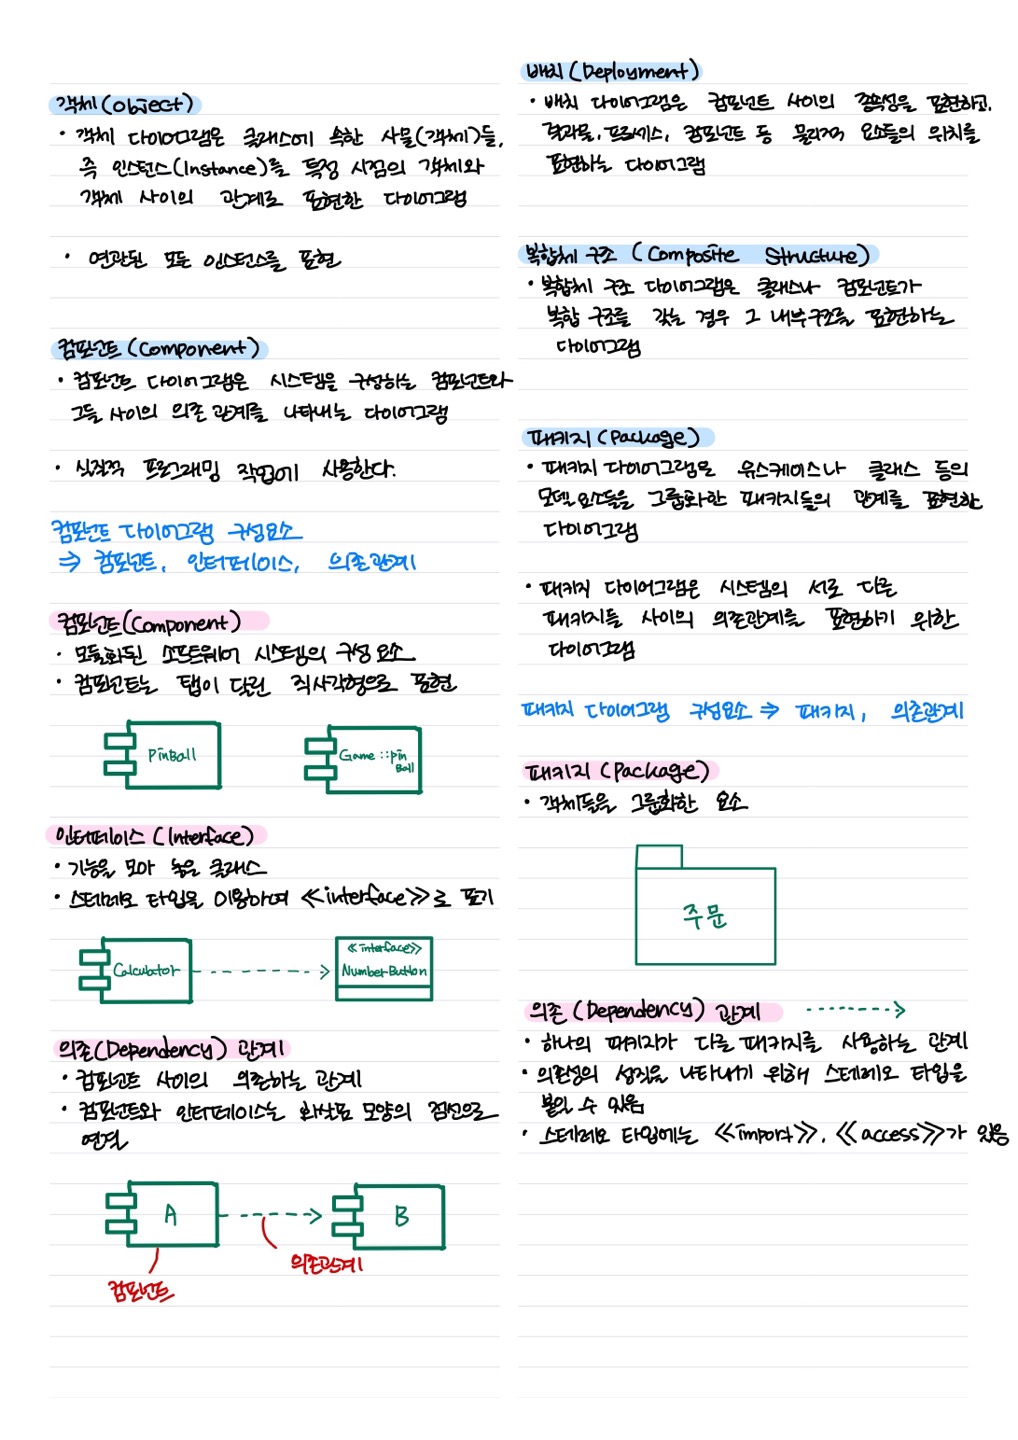 객체(object)
· 객체 다이어그램은 클래스에 속한 사물(객체)들,
즉 인스턴스(Instance)를 특정 시점의 객체와
객체 사이의 관계로 표현한 다이어그램
· 연관된 모든 인스턴스를 표현
컴포넌트(Component)
· 컴포넌트 다이어그램은 시스템을 구성하는 컴포넌트와
그들 사이의 의존 관계를 나타내는 다이어그램
· 실질적 프로그래밍 작업에 사용한다.
컴포넌트 다이어그램 구성요소
⇒ 컴포넌트, 인터페이스, 의존관계
컴포넌트(Component)
· 모듈화된 소프트웨어 시스템의 구성 요소
· 컴포넌트는 탭이 달린 직사각형으로 표현
PinBall
Game::pin
Ball
인터페이스(Interface)
· 기능을 모아 놓은 클래스
· 스테레오 타입을 이용하여 ≪interface≫로 표기
Calculator
≪interface≫
NumberButton
의존(Dependency) 관계
· 컴포넌트 사이의 의존하는 관계
· 컴포넌트와 인터페이스는 화살표 모양의 점선으로
연결
A
B
의존관계
컴포넌트
배치(Deployment)
· 배치 다이어그램은 컴포넌트 사이의 종속성을 표현하고,
결과물, 프로세스, 컴포넌트 등 물리적 요소들의 위치를
표현하는 다이어그램
복합체 구조 (Composite Structure)
· 복합체 구조 다이어그램은 클래스나 컴포넌트가
복합 구조를 갖는 경우 그 내부구조를 표현하는
다이어그램
패키지(Package)
· 패키지 다이어그램은 유스케이스나 클래스 등의
모델 요소들을 그룹화한 패키지들의 관계를 표현한
다이어그램
· 패키지 다이어그램은 시스템의 서로 다른
패키지들 사이의 의존관계를 표현하기 위한
다이어그램
패키지 다이어그램 구성요소 ⇒ 패키지, 의존관계
패키지(Package)
· 객체들을 그룹화한 요소
주문
의존(Dependency) 관계
· 하나의 패키지가 다른 패키지를 사용하는 관계
· 의존성의 성질을 나타내기 위해 스테레오 타입을
붙일 수 있음
· 스테레오 타입에는 ≪import≫, ≪access≫가 있음